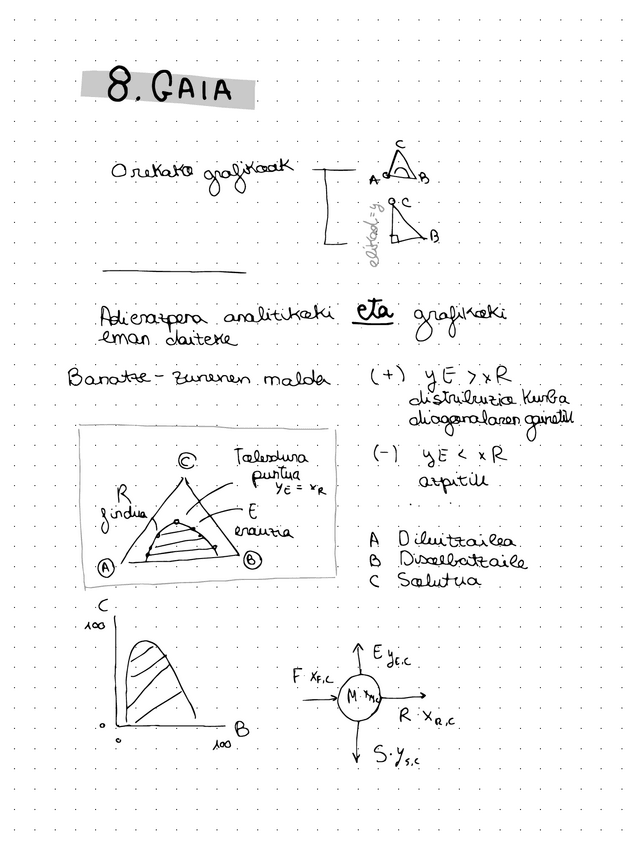 8. GAIA
Orekako grafikoak
C
A B
C
B
elikad=y.
Adierazpena analitikoki eta grafikoki
eman daiteke
Banatze-zuzenen malda
(+) yE > xR
distribuzio kurba
diagonalaren gainetik
(-) yE < xR
azpitik
C
Tolesdura
puntua
yE = xR
R
findua
E
erauzia
A
B
A Diluitzailea
B Disolbatzaile
C Solutua
C
100
0
0
100
B
E yE,C
F xF,C
M·xM,C
R·xR,C
S·yS,C